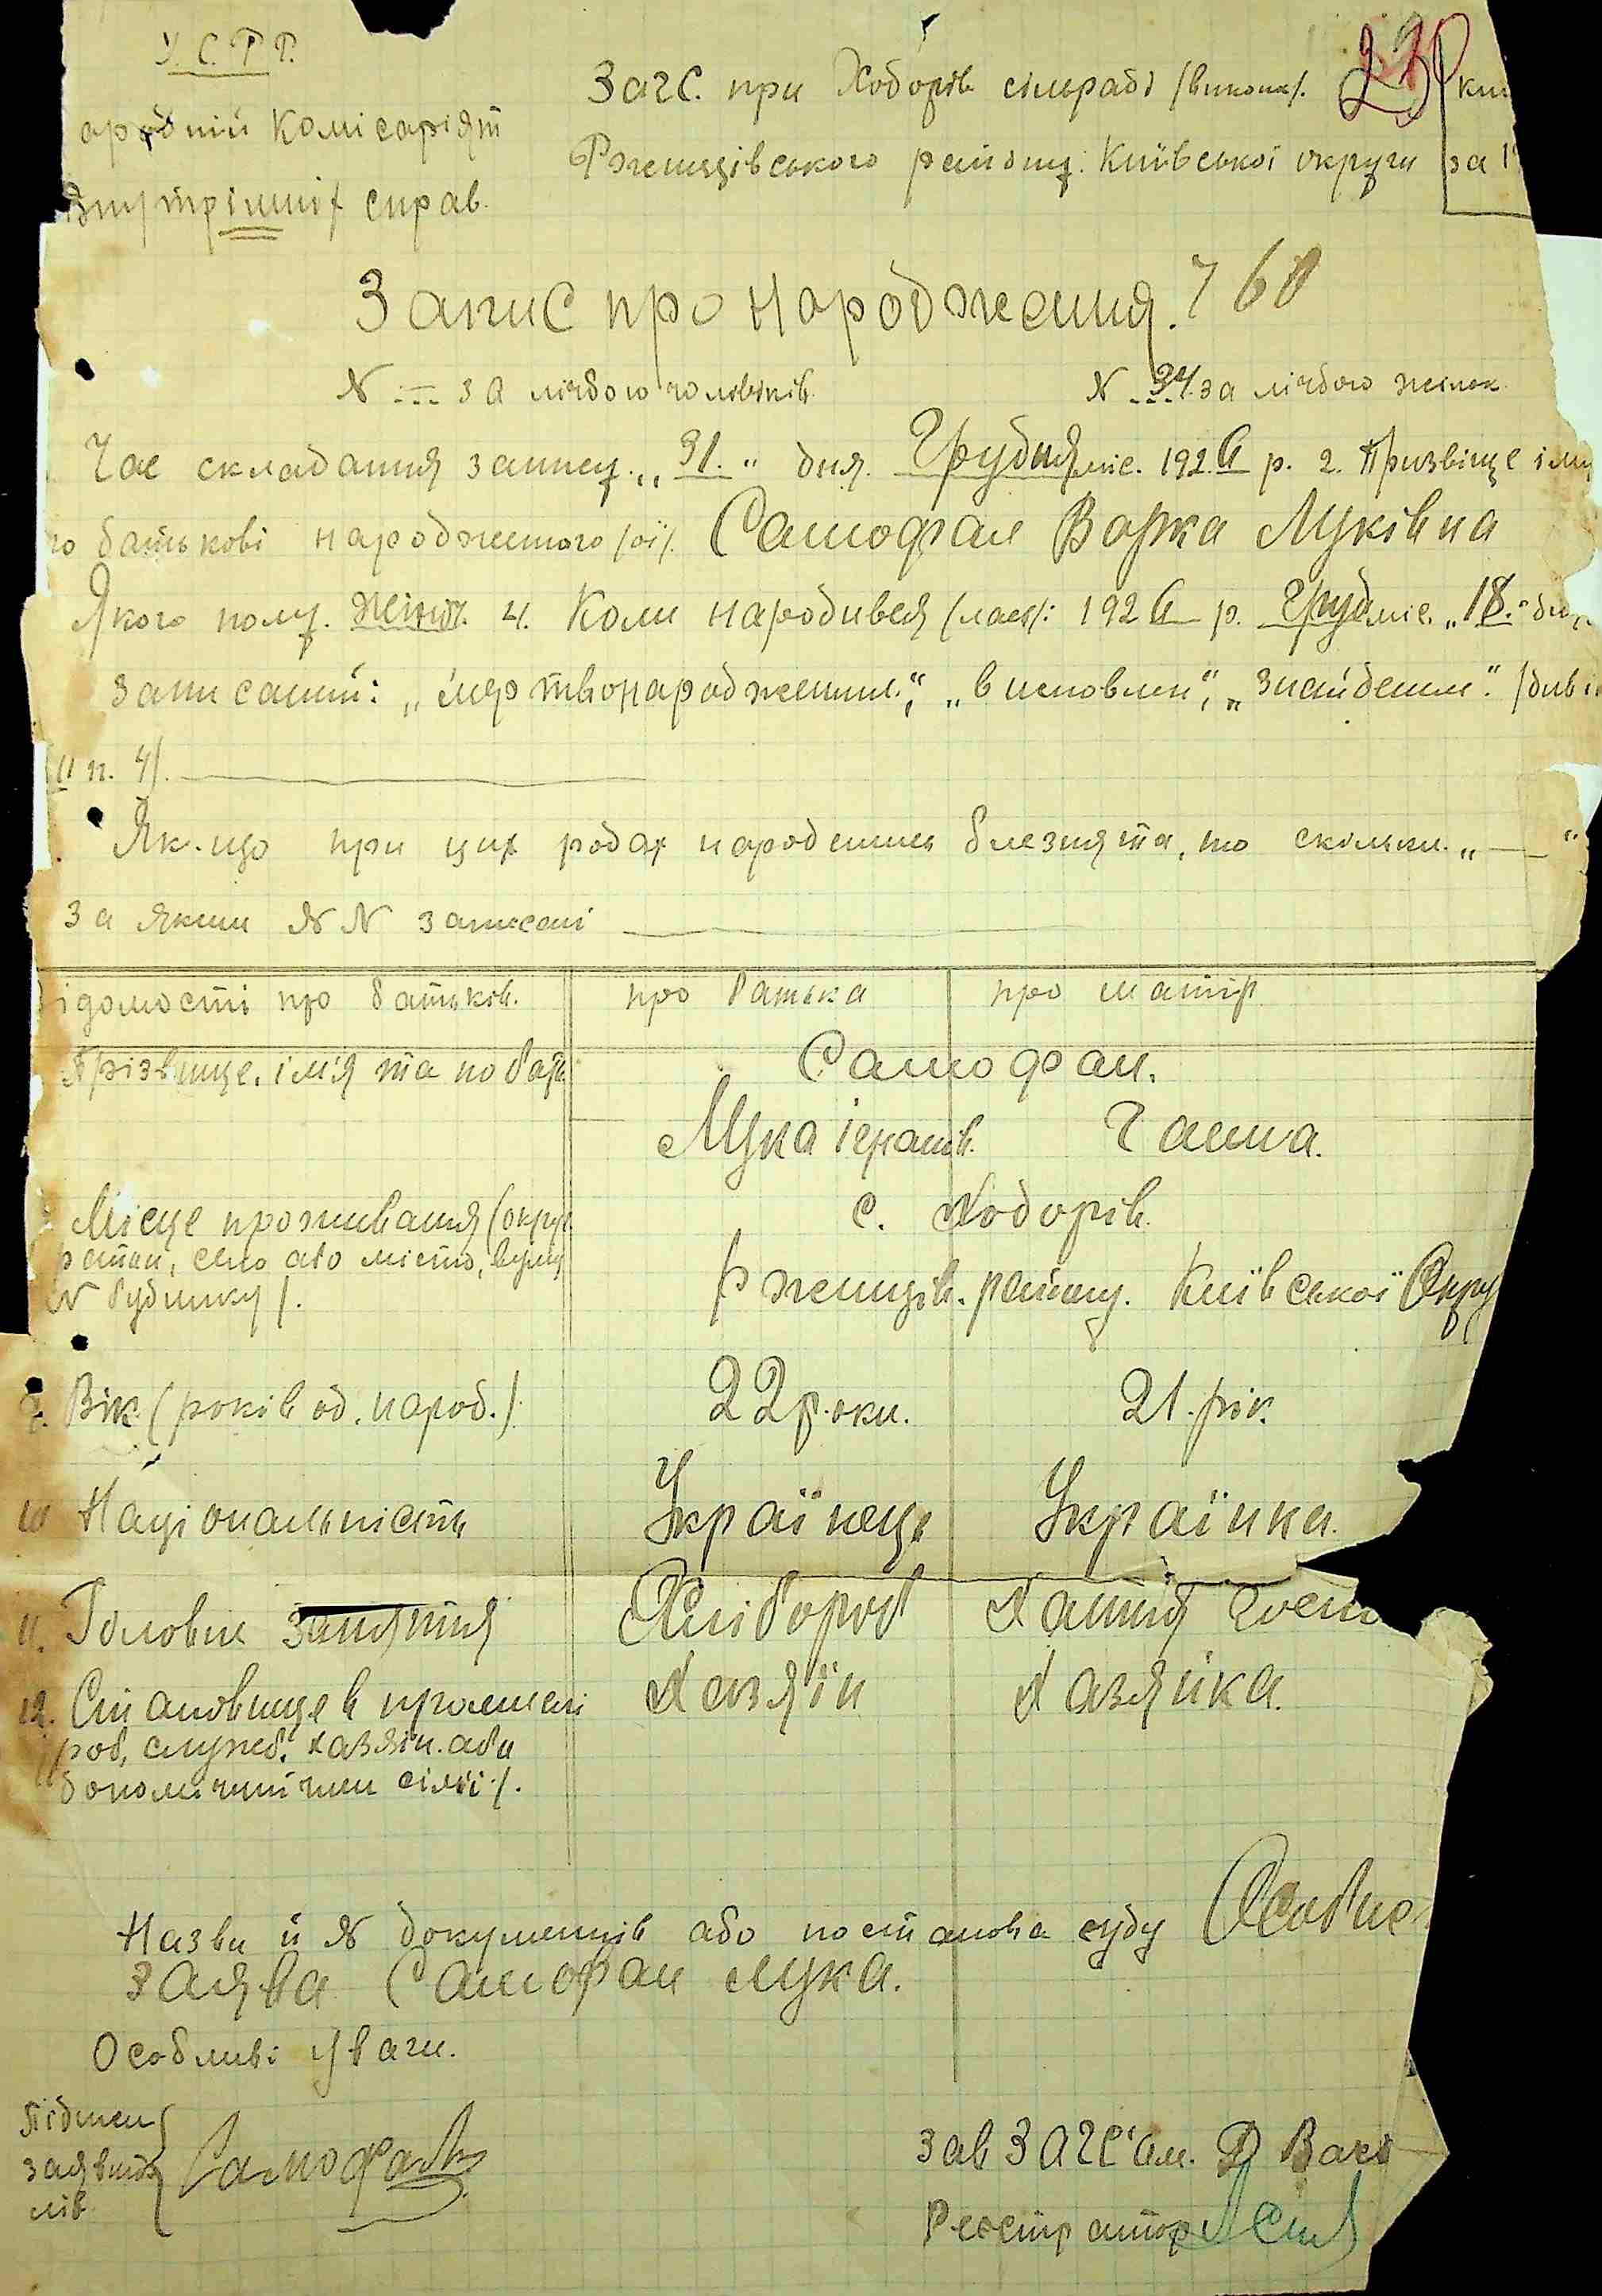 У. С. Р. Р.
ародній Комісаріят
внутрішніх справ.
ЗАГС. при Ходорів сільраді /викон/.
Ржищівського району. Київської округи
230
за 19
Запис про народження. 760
N --- за лічбою чоловіків.
N 34. за лічбою жінок
Час складання запису „31.“ дня. Грудня міс. 1926 р. 2. Призвіще ім
по батькові народженого /ої/. Самофал Варка Луківна
Якого полу. Жіноч. 4. Коли народився /лась/: 1926 р. Груд міс. „18.“ дн
записаний: „мертвонароджении“, „внсловлен“, „знайдении“. /див
п. 4/.
Як-що при цих родах народились близнята, то скільки „—“
за якими NN записані
ідомості про батьків.
про батька
про матір
Прізвище, ім'я та по бать
Самофал.
Лука Ігнатів.
Ганна.
Місце проживання (округ
район, село або місто, вулиц
N будинку /.
с. Ходорів.
Ржищів. району. Київської Окру
9. Вік (років од. народ.)
22 роки.
21. рік.
10 Національність
Українець
Українка.
11. Головне заняття
Хлібороб
Хатня госп
12. Становище в промислі
роб, служб. хазяїн. або
допоміжний член сім'ї /.
Хазяїн
Хазяйка.
Назви й N документів або постанова суду Особис
заява Самофал Лука.
Особливі уваги.
Підписи
заявите
лів
Самофал
Зав ЗАГС'ом.
Реєстратор